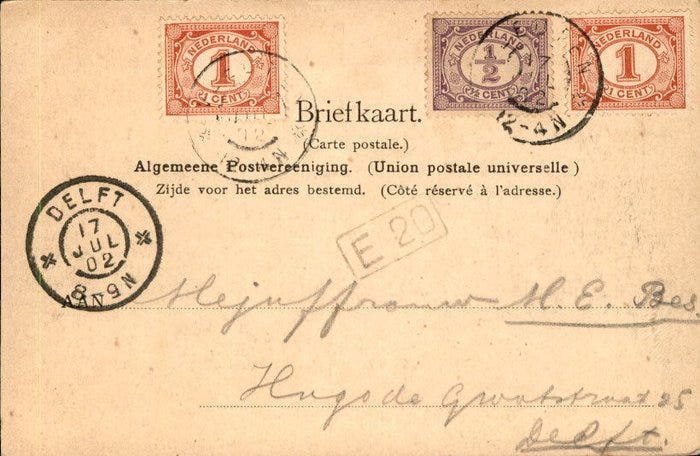 NEDERLAND
1
1 CENT
NEDERLAND
1/2
½ CENT
NEDERLAND
1
1 CENT
12-4N
Briefkaart.
(Carte postale.)
Algemeene Postvereeniging. (Union postale universelle)
Zijde voor het adres bestemd. (Côté réservé à l'adresse.)
DELFT
17
JUL
02
8-9N
AAN
E 20
Mejuffrouw M. E. Bes.
Hugo de Grootstraat 25
Delft.